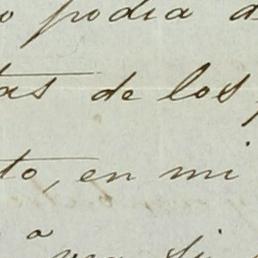 o podia a
tas de los
to, en mi